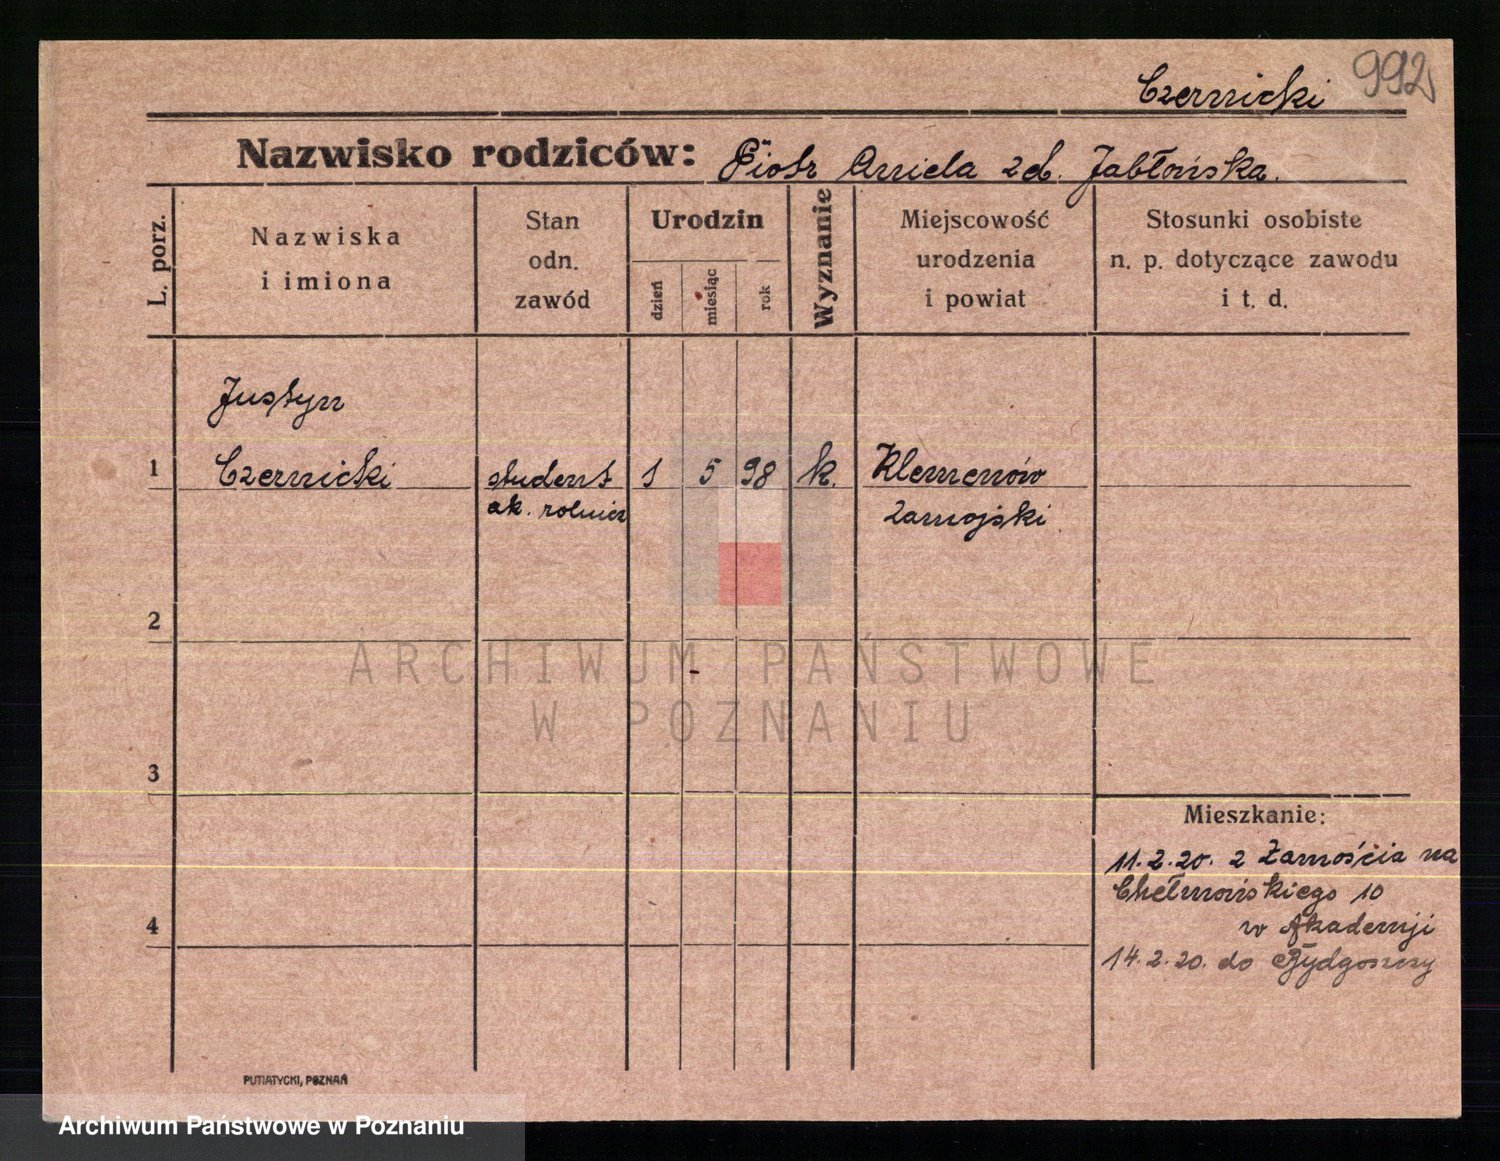 992
Czernicki
Nazwisko rodziców: Piotr Aniela z d. Jabłońska.
L. porz.
Nazwiska
i imiona
Stan
odn.
zawód
Urodzin
dzień
miesiąc
rok
Wyznanie
Miejscowość
urodzenia
i powiat
Stosunki osobiste
n. p. dotyczące zawodu
i t. d.
Justyn
1 Czernicki student 1 5 98 k. Klemenów
ak. rolnicz zamojski
2
ARCHIWUM PAŃSTWOWE
W POZNANIU
3
Mieszkanie:
11.2.20. z Zamościa na
Chełmońskiego 10
w Akademji
4
14.2.20. do Bydgoszczy
PUTIATYCKI, POZNAŃ
Archiwum Państwowe w Poznaniu